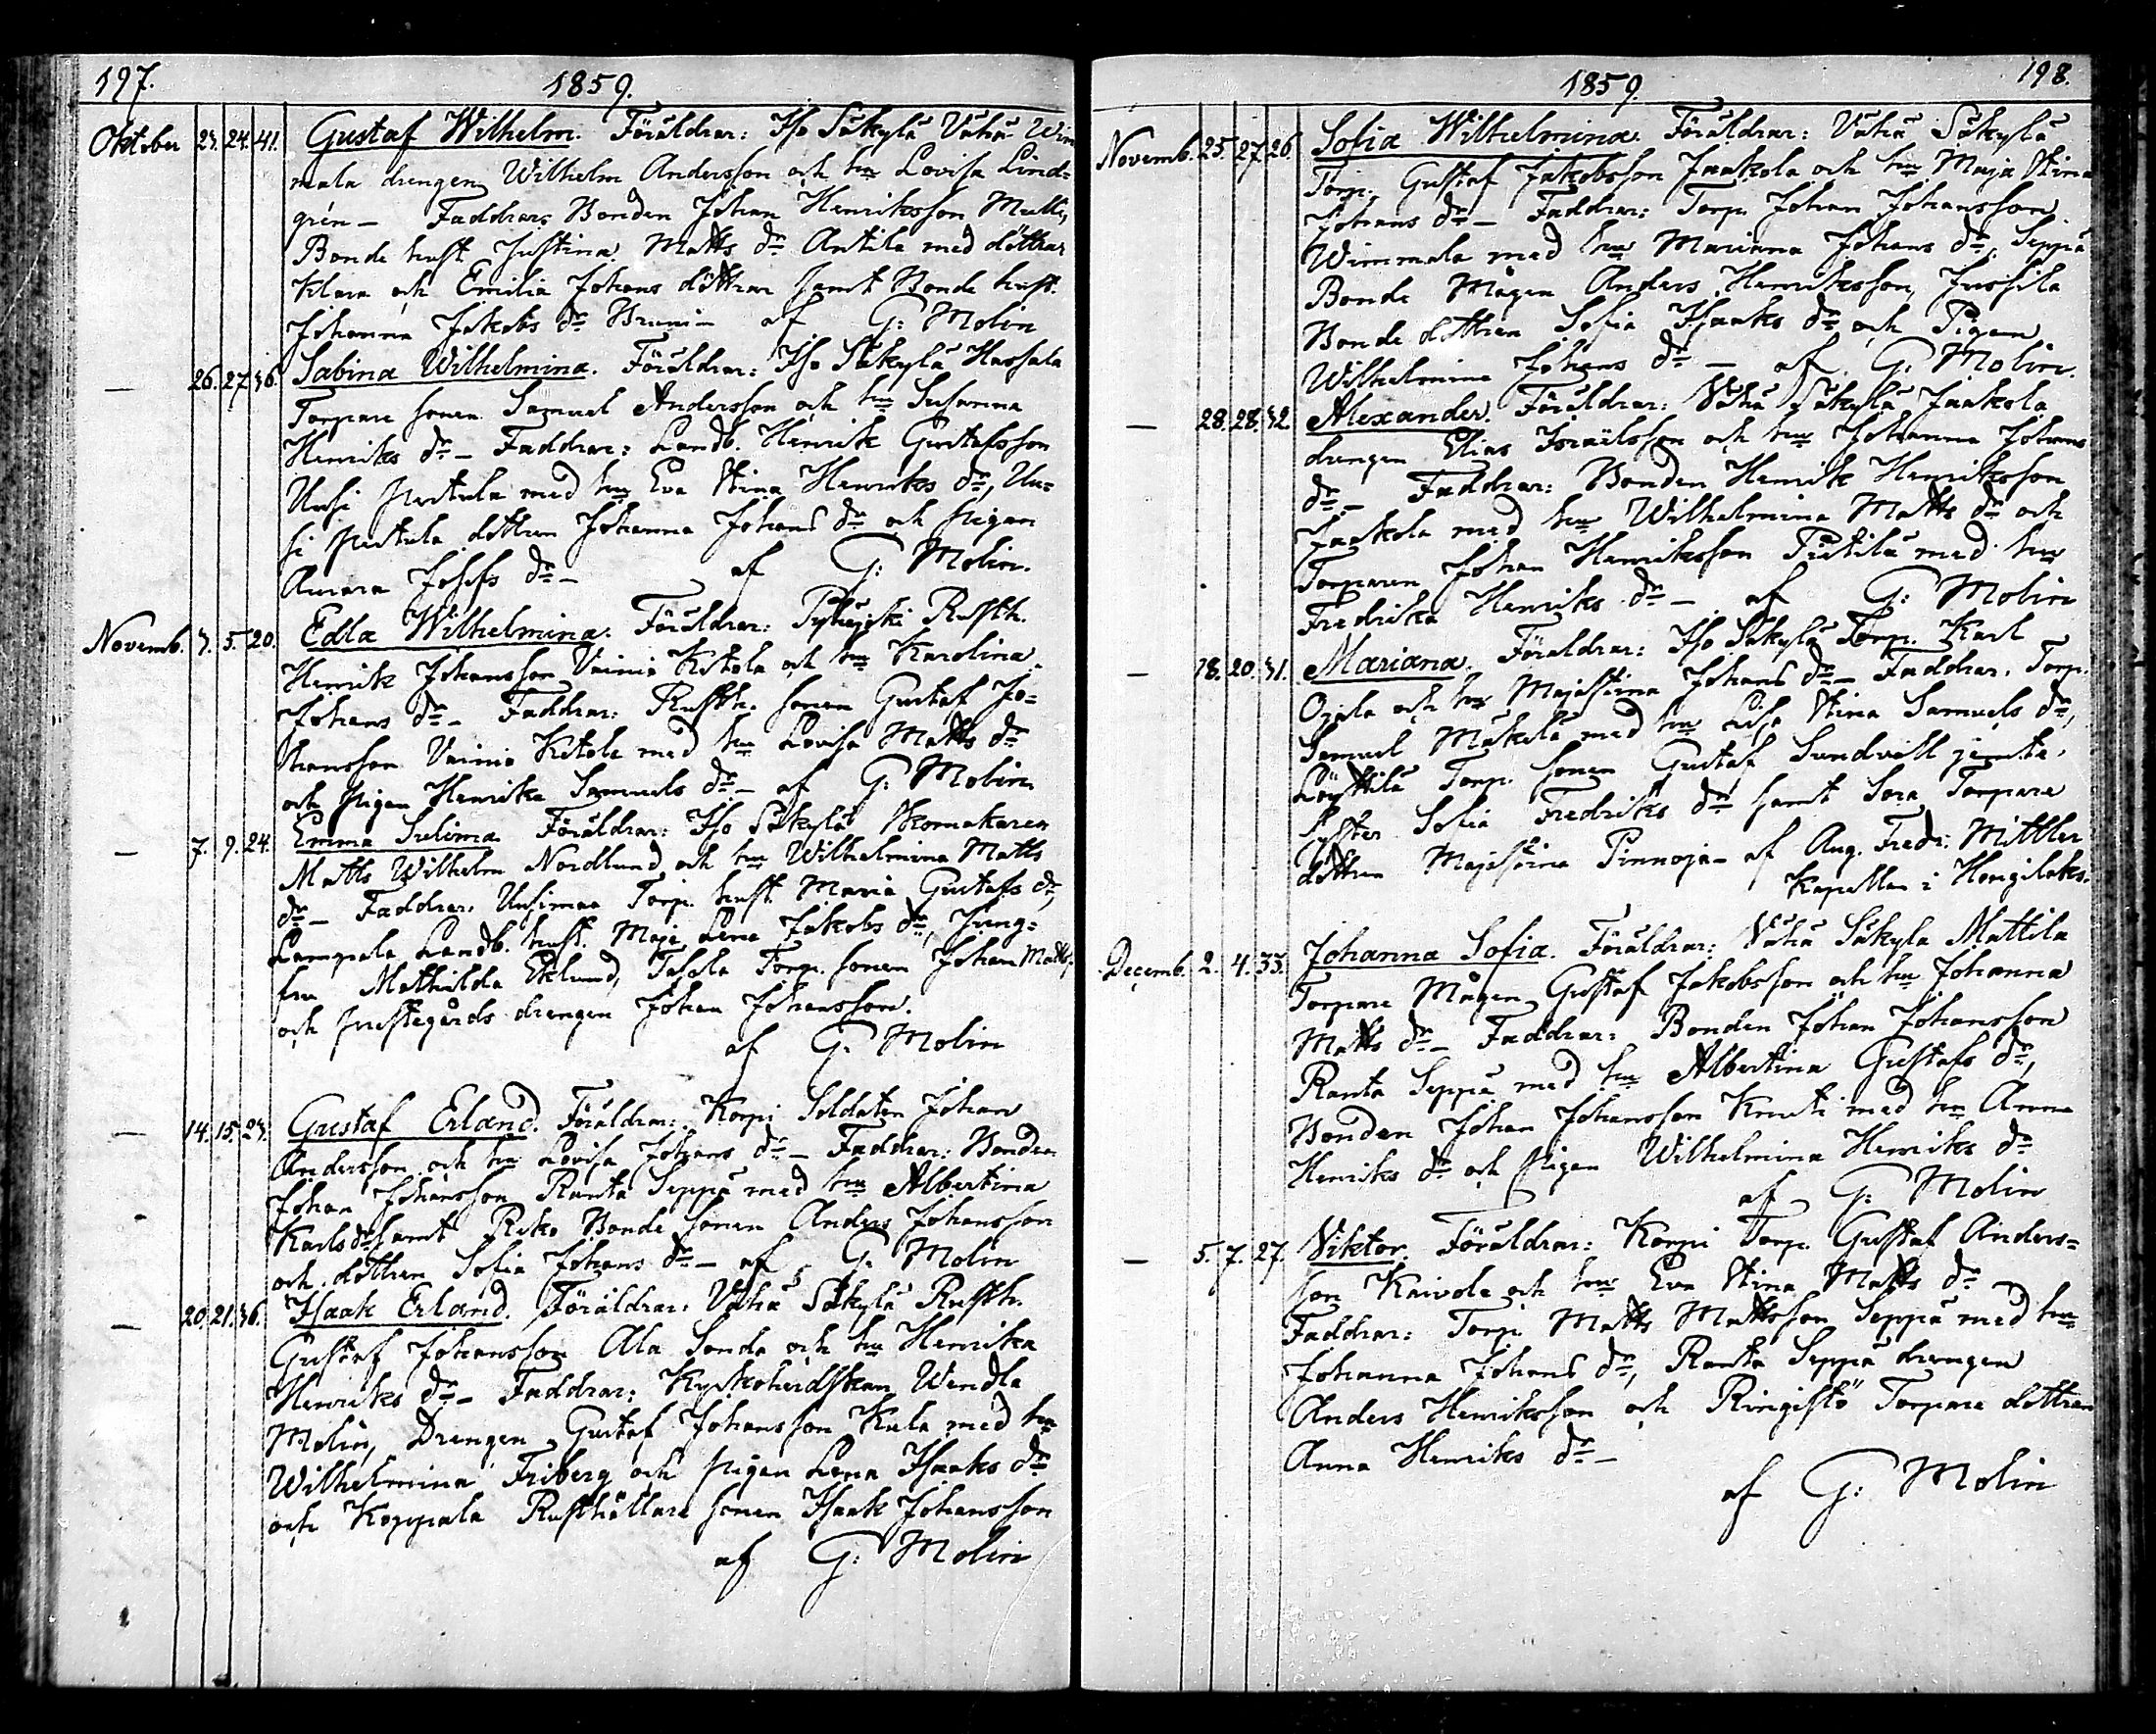 197.
1859.
Oktober 23. 24. 41. Gustaf Wilhelm. Föräldrar: Iso Säkylä Vähä Wim
mala drengen Wilhelm Andersson och hu Lovisa Lind=
grén – Faddrar: Bonden Johan Henriksson
Bonde hust. Justina Matts dr Antila med döttrar
Klara och Emilia Johans döttrar samt Bonde hust.
Johanna Jakobs dr – af G: Molin
— 26. 27. 36. Sabina Wilhelmina. Föräldrar: Iso Säkylä Hassala
Torpare sonen Samuel Andersson och hu Susanna
Henriks dr – Faddrar: Landb. Henrik Gustafsson
Uusi Perttula med hu Eva Stina Henriks dr, Uu=
si Perttula dottren Johanna Johans dr och pigan
Amara Josefs dr – af G: Molin.
Novemb. 3. 5. 20. Edla Wilhelmina. Föräldrar: Pyhäjoki Rusth.
Henrik Johansson Vainio Ketola och hu Karolina
Johans dr – Faddrar: Rusth. sonen Gustaf Jo=
hansson Vainio Ketola med hu Lovisa Matts dr
och pigan Henrika Samuels dr – af G: Molin
— 7. 9. 24. Emma Selima Föräldrar: Iso Säkylä Skomakaren
Matts Wilhelm Nordlund och hu Wilhelmina Matts
dr – Faddrar: Uusimaa Torp. hust. Maria Gustafs dr,
Lampala Landb. hust. Maja Lena Jakobs dr, Jung=
fru Mathilda Eklund, Torp. sonen Johan Matts.
och prestegårds drengen Johan Johansson.
af G: Molin
— 14. 15. 23. Gustaf Erland. Föräldrar: Korpi Soldaten Johan
Andersson och hu Lovisa Johans dr – Faddrar: Bonden
Johan Johansson Ranta Seppä med hu Albertina
Karls dr samt Reko Bonde sonen Anders Johansson
och dottren Sofia Johans dr – af G: Molin
— 20. 21. 36. Isaak Erland. Föräldrar: Vähä Säkylä Rusth.
Gustaf Johansson Ala Sonda och hu Henrika
Henriks dr – Faddrar: Kyrkoherdskan Wendla
Molin, Drengen Gustaf Johansson Kula med hu
Wilhelmina Friberg och pigan Lena Isaaks dr
och Koppala Rusthållare sonen Isaak Johansson
af G: Molin
198.
1859.
Novemb. 25. 27. 26. Sofia Wilhelmina. Föräldrar: Vähä Säkylä
Torp. Gustaf Jakobsson Jaakola och hu Maja Stina
Johans dr – Faddrar: Torp. Johan Johansson
Wimmala med hu Marianna Johans dr, Seppä
Bonde Mågen Anders Henriksson, Jussila
Bonde dottren Sofia Isaaks dr och Pigan
Wilhelmina Johans dr – af G: Molin.
— 28. 28. 32. Alexander. Föräldrar: Vähä Säkylä Jaakola
drengen Elias Israëlsson och hu Johanna Johans
dr – Faddrar: Bonden Henrik Henriksson
Jaakola med hu Wilhelmina Matts dr och
Torparen Johan Henriksson Pietilä med hu
Fredrika Henriks dr – af G: Molin
— 18. 20. 31. Mariana. Föräldrar: Iso Säkylä Torp. Karl
Ojala och hu Majastina Johans dr – Faddrar: Torp.
Samuel Mäkelä med hu Lisa Stina Samuels dr,
Löyttilä Torp. sonen Gustaf Sundvall jemte
Syster Sofia Fredriks dr samt Sora Torpare
dottren Majastina Pinnoja – af Aug. Fredr. Mittler
Kapellan i Hongilaks.
Decemb. 2. 4. 33. Johanna Sofia. Föräldrar: Vähä Säkylä Mattila
Torpare Mågen Gustaf Jakobsson och hu Johanna
Matts dr – Faddrar: Bonden Johan Johansson
Ranta Seppä med hu Albertina Gustafs dr,
Bonden Johan Johansson Knuti med hu Anna
Henriks dr och pigan Wilhelmina Henriks dr
af G: Molin
— 5. 7. 27. Viktor. Föräldrar: Korpi Torp. Gustaf Anders=
son Kaivola och hu Eva Stina Matts dr
Faddrar: Torp. Matts Mattsson Seppä med hu
Johanna Johans dr, Ranta Seppä drengen
Anders Henriksson och Ringistö Torpare dottren
Anna Henriks dr –
af G: Molin